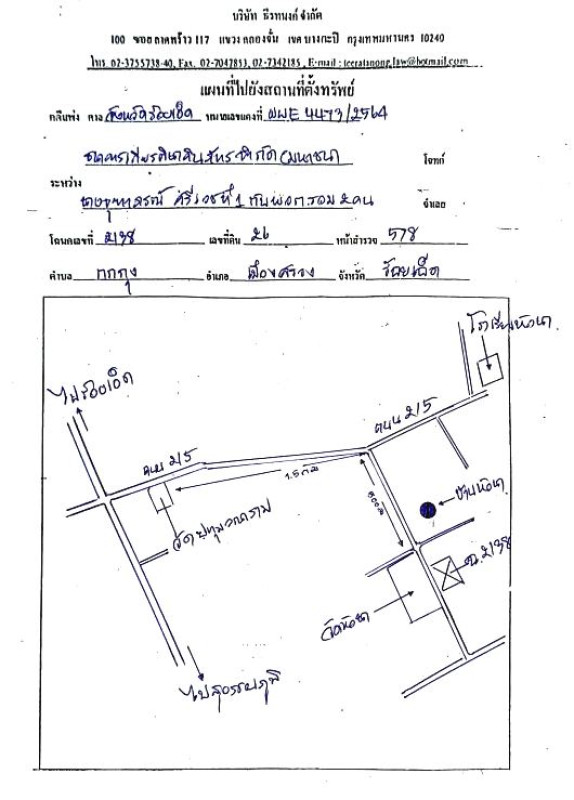 บริษัท ธีรทนงค์ จำกัด
100 ซอย ลาดพร้าว 117 แขวง คลองจั่น เขต บางกะปิ กรุงเทพมหานคร 10240
โทร. 02-3755738-40, Fax. 02-7047853, 02-7342185, E-mail : teeratanong.law@hotmail.com
แผนที่ไปยังสถานที่ตั้งทรัพย์
คดีแพ่ง ศาล จังหวัดร้อยเอ็ด หมายเลขแดงที่ ผบE 4473/2564
ธนาคารเกียรตินาคินภัทร จำกัด (มหาชน) โจทก์
ระหว่าง
ศรีเวชที่ 1 กับพวกรวม 2 คน จำเลย
โฉนดเลขที่ 2138 เลขที่ดิน 26 หน้าสำรวจ 578
ตำบล กกกุง อำเภอ เมืองสรวง จังหวัด ร้อยเอ็ด
โรงเรียน
ไปร้อยเอ็ด
ถนน 215
ถนน 215
1.5 กม
วัด
ฉ. 2138
ไปสุวรรณภูมิ